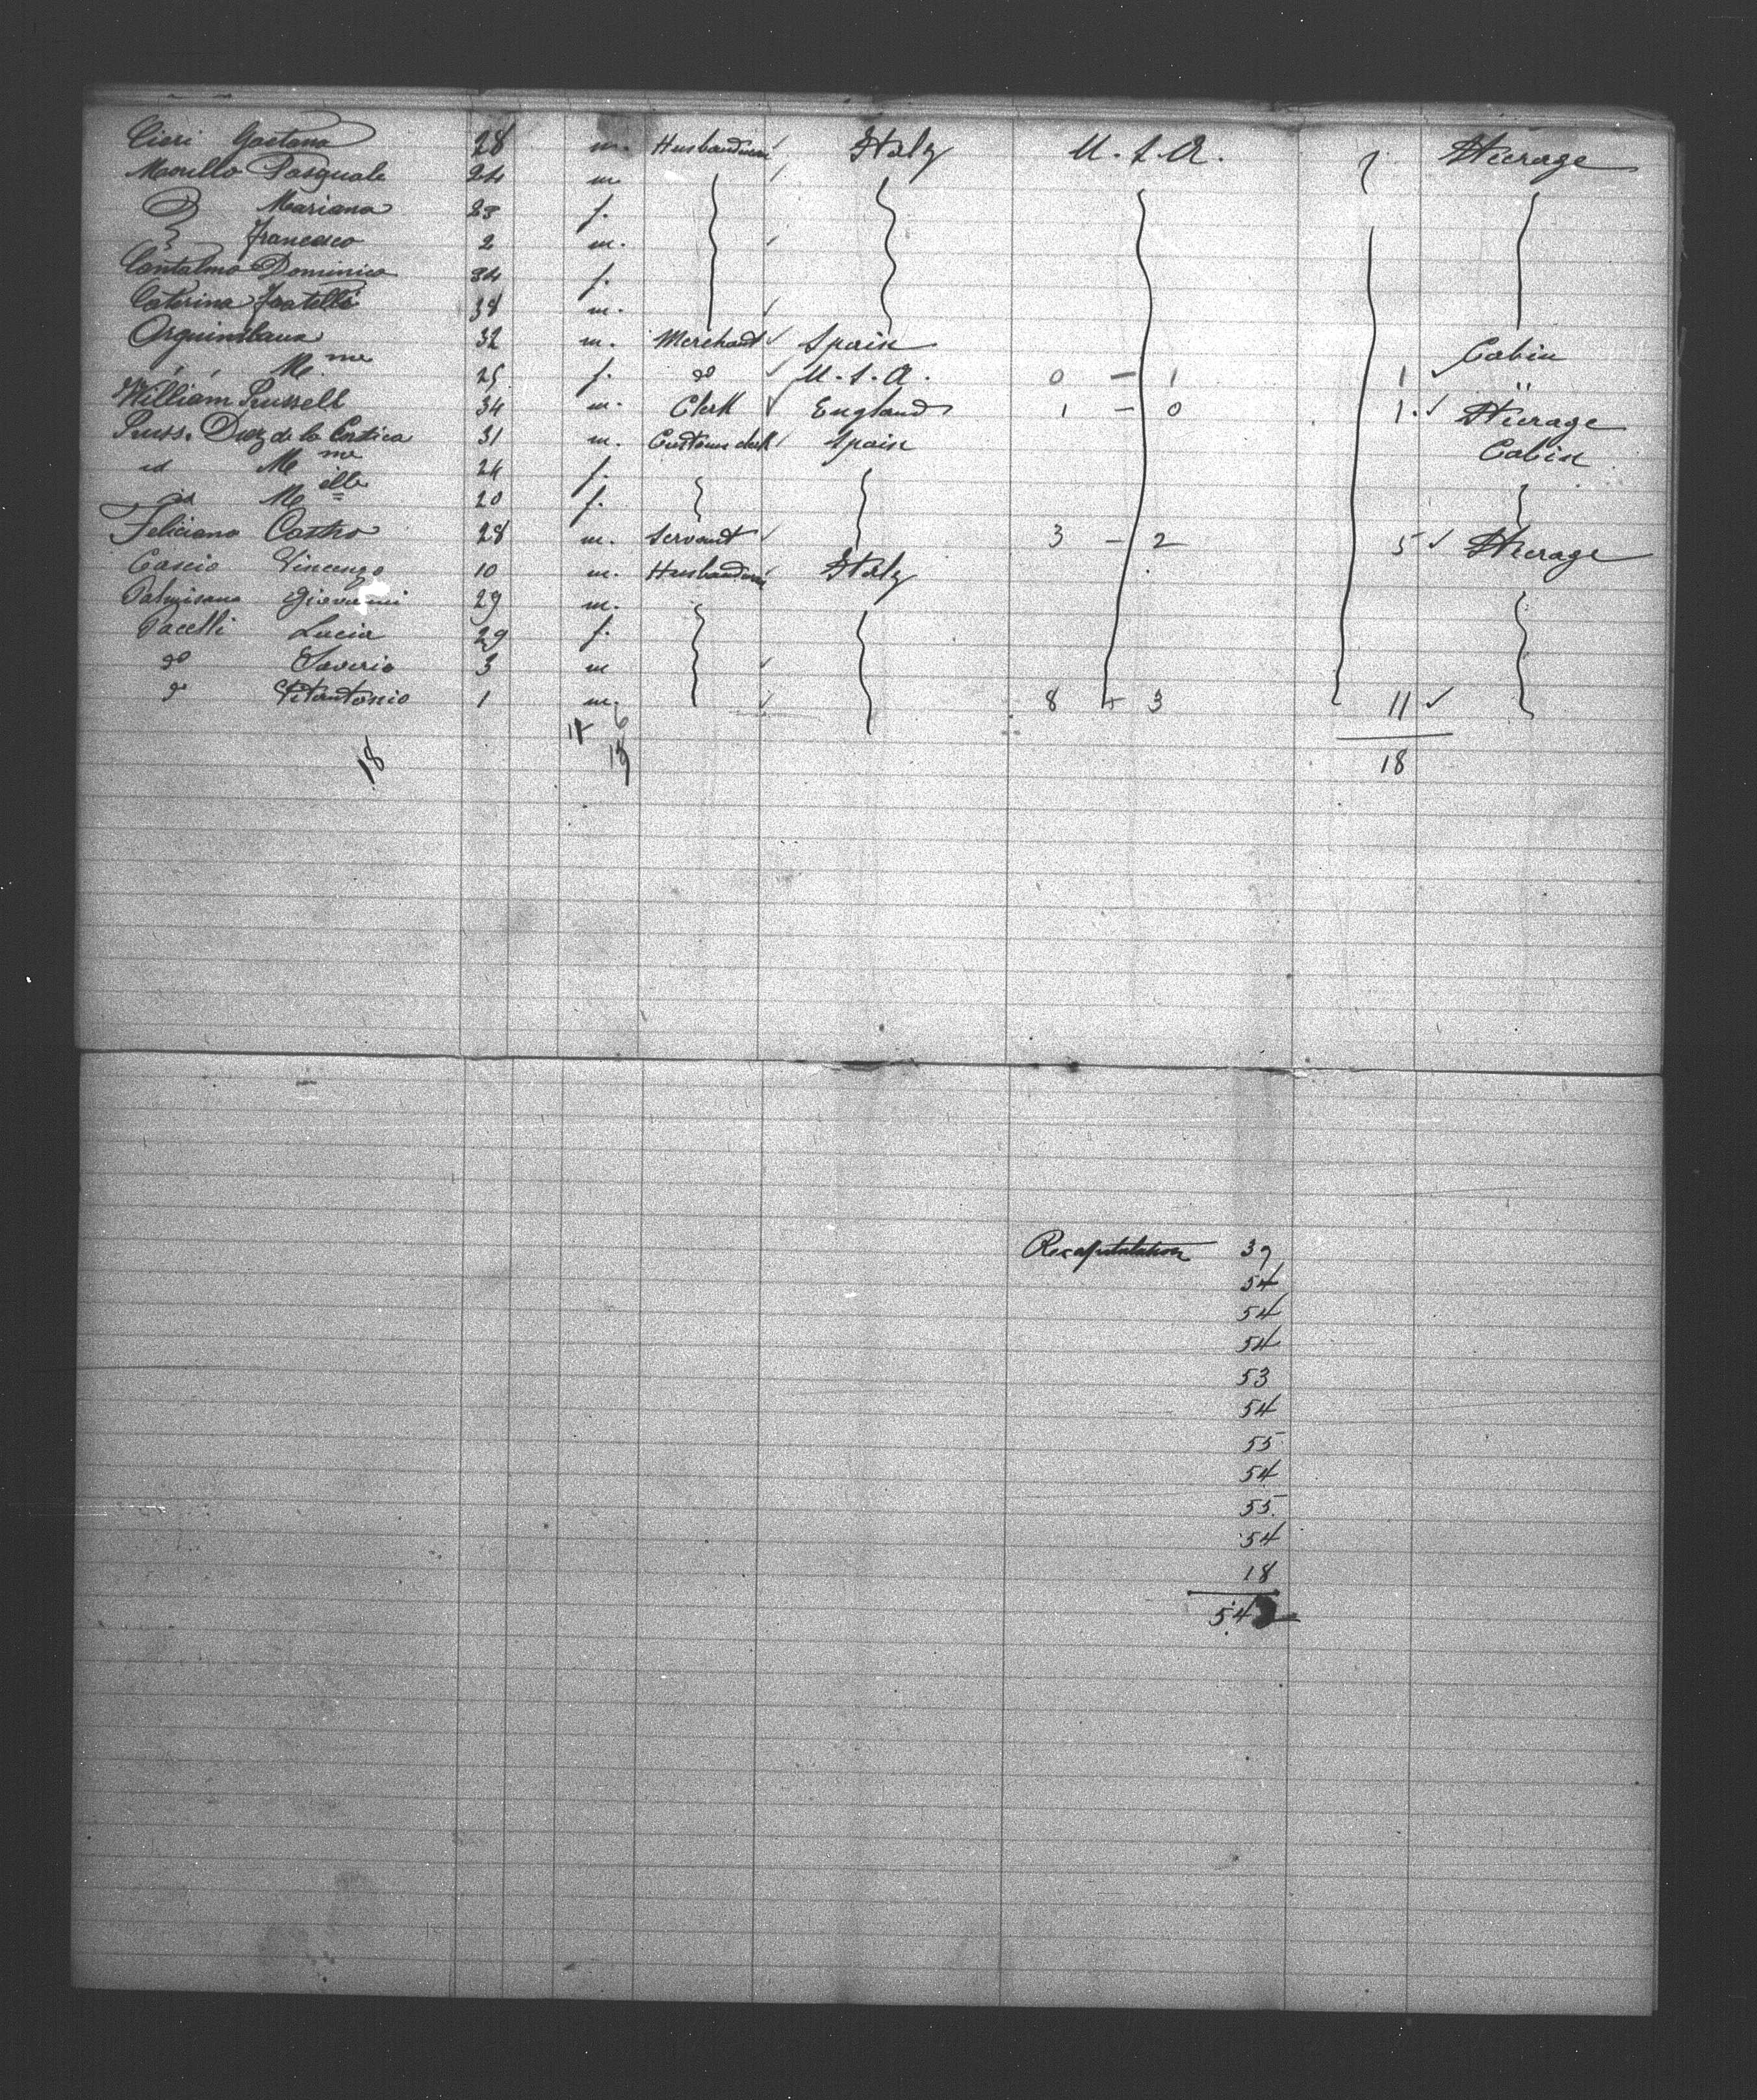 Cieri Gaetano 28 m. Husbandman Italy U.S.A. Steerage
Morillo Pasquale 24 m.
Mariana 23 f.
Francesco 2 m.
Cantalmo Dominica 34 f.
Caterina Fratelli 38 m.
Orquinilaux 32 m. Merchant Spain Cabin
" " Mme 25 f. do U.S.A. 0 - 1 1 "
William Russell 34 m. Clerk England 1 - 0 1 Steerage
Diez de la Cortica 31 m. Customs clerk Spain Cabin
id Mme 24 f.
id Melle 20 f.
Feliciano Castro 28 m. Servant 3 - 2 5 Steerage
Cascio Vincenzo 10 m. Husbandman Italy
Palmisano Giovanni 29 m.
Pacelli Lucia 29 f.
do Saverio 3 m
do Vitantonio 1 m. 8 + 3 11
6
18 18
Recapitulation 39
54
54
54
53
54
55
54
55
54
18
54